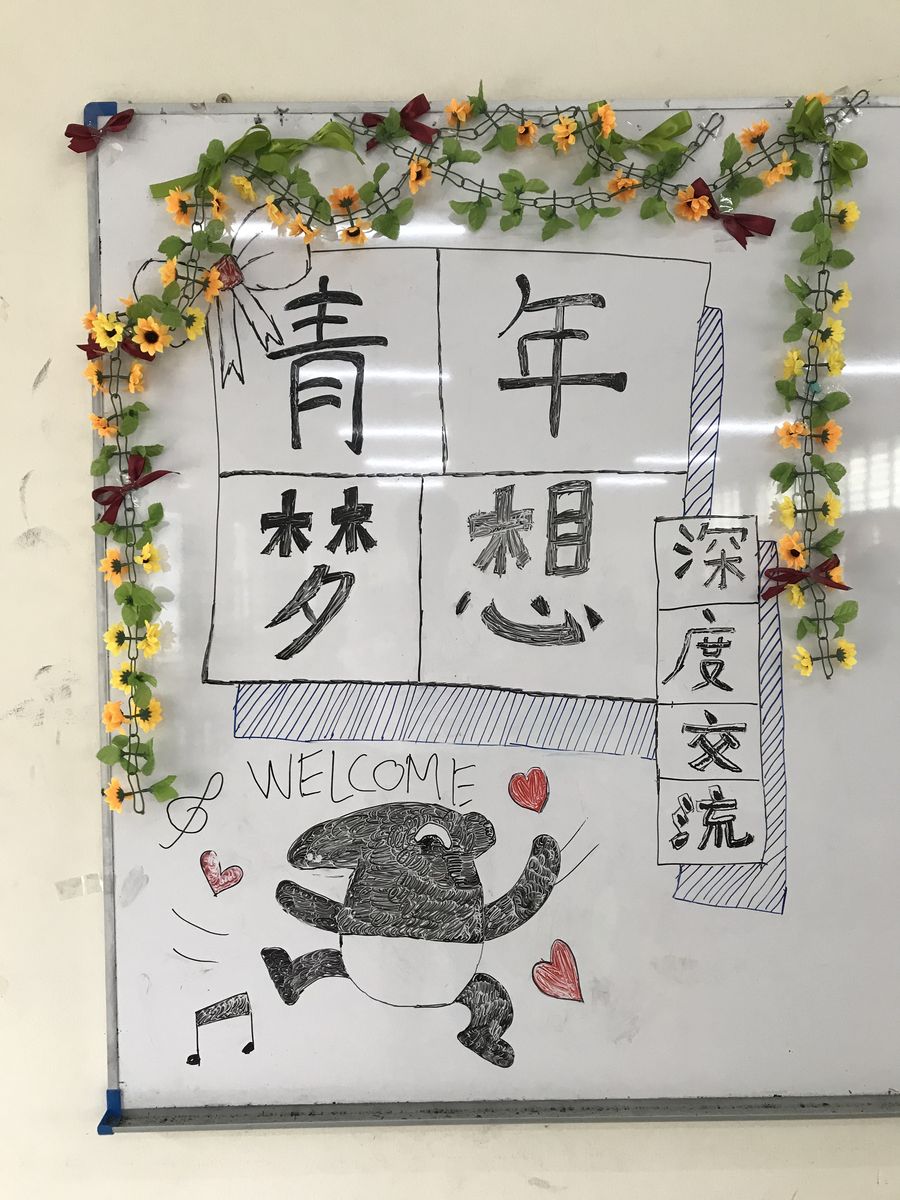 青年
梦想
深度交流
WELCOME